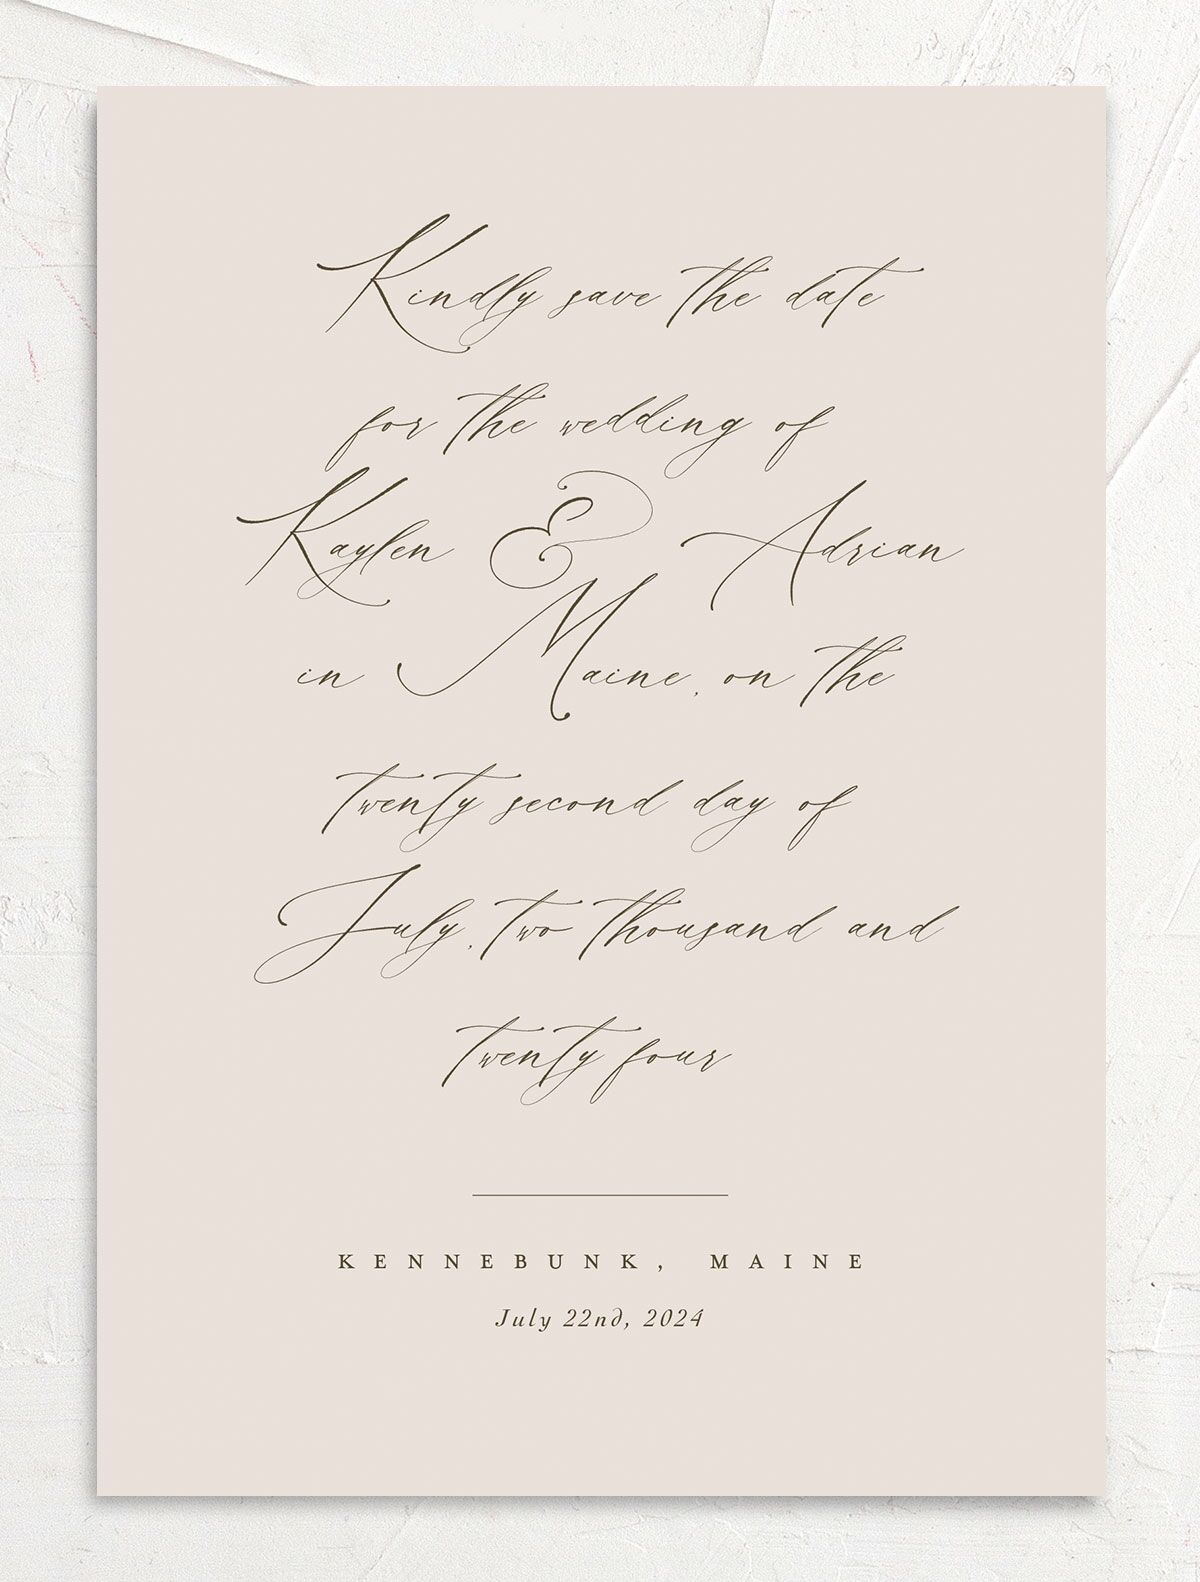 Kindly save the date
for the wedding of
Kaylen & Adrian
in Maine, on the
twenty second day of
July, two thousand and
twenty four
KENNEBUNK, MAINE
July 22nd, 2024